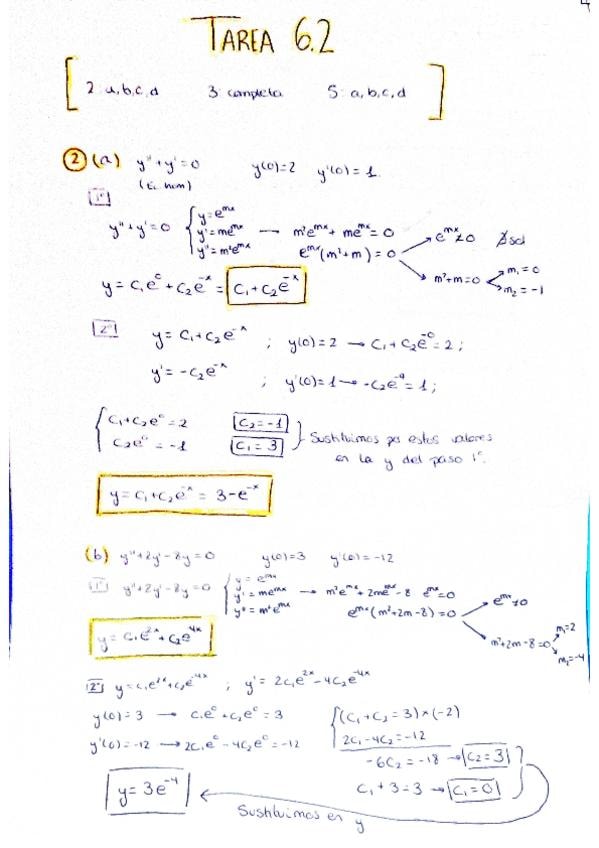 TAREA 6.2
2: a,b,c,d 3: completa 5: a,b,c,d
② (a) y''+y'=0 y(0)=2 y'(0)=1.
1º
y''+y'=0 { y=e^mx y'=me^mx y''=m²e^mx → m²e^mx + me^mx = 0
e^mx(m²+m)=0 e^mx≠0 ∄sol
m²+m=0 m₁=0 m₂=-1
y=c₁e⁰+c₂e^-x = c₁+c₂e^-x
2º y=c₁+c₂e^-x ; y(0)=2 → c₁+c₂e^-0=2;
y'=-c₂e^-x ; y'(0)=1 → -c₂e^-0=1;
{ c₁+c₂e⁰=2 c₂=-1
c₂e⁰=-1 c₁=3 } Sustituimos por estos valores
en la y del paso 1º.
y=c₁+c₂e^-x = 3-e^-x
(b) y''+2y'-8y=0 y(0)=3 y'(0)=-12
1º y''+2y'-8y=0 { y=e^mx y'=me^mx y''=m²e^mx → m²e^mx+2me^mx-8 e^mx=0
e^mx(m²+2m-8)=0 e^mx≠0
m²+2m-8=0 m₁=2 m₂=-4
y=c₁e^2x+c₂e^-4x
2º y=c₁e^2x+c₂e^-4x ; y'=2c₁e^2x-4c₂e^-4x
y(0)=3 → c₁e⁰+c₂e⁰=3 { (c₁+c₂=3)*(-2)
y'(0)=-12 → 2c₁e⁰-4c₂e⁰=-12 2c₁-4c₂=-12
-6c₂=-18 → c₂=3
y=3e^-4 c₁+3=3 → c₁=0
Sustituimos en y